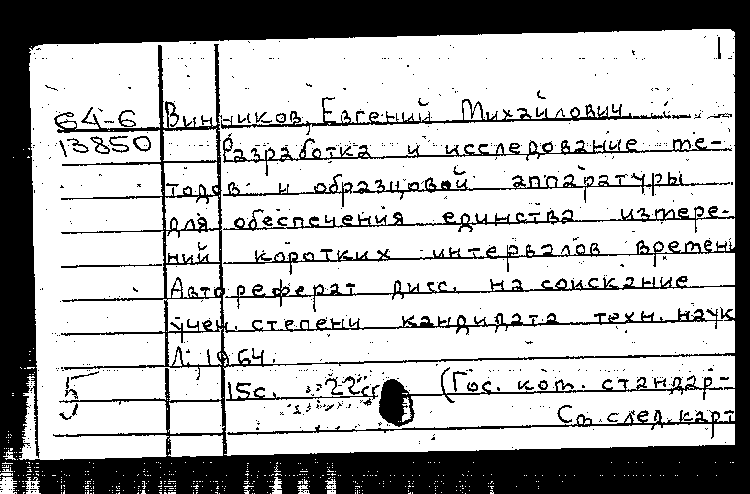 64-6 Винников, Евгений Михайлович.
13850 Разработка и исследование ме-
тодов и образцовой аппаратуры
для обеспечения единства измере-
ний коротких интервалов времени
Автореферат дисс. на соискание
учен. степени кандидата техн. наук
Л., 1964.
5 15с. 22см (Гос. ком. стандар-
См. след. карт